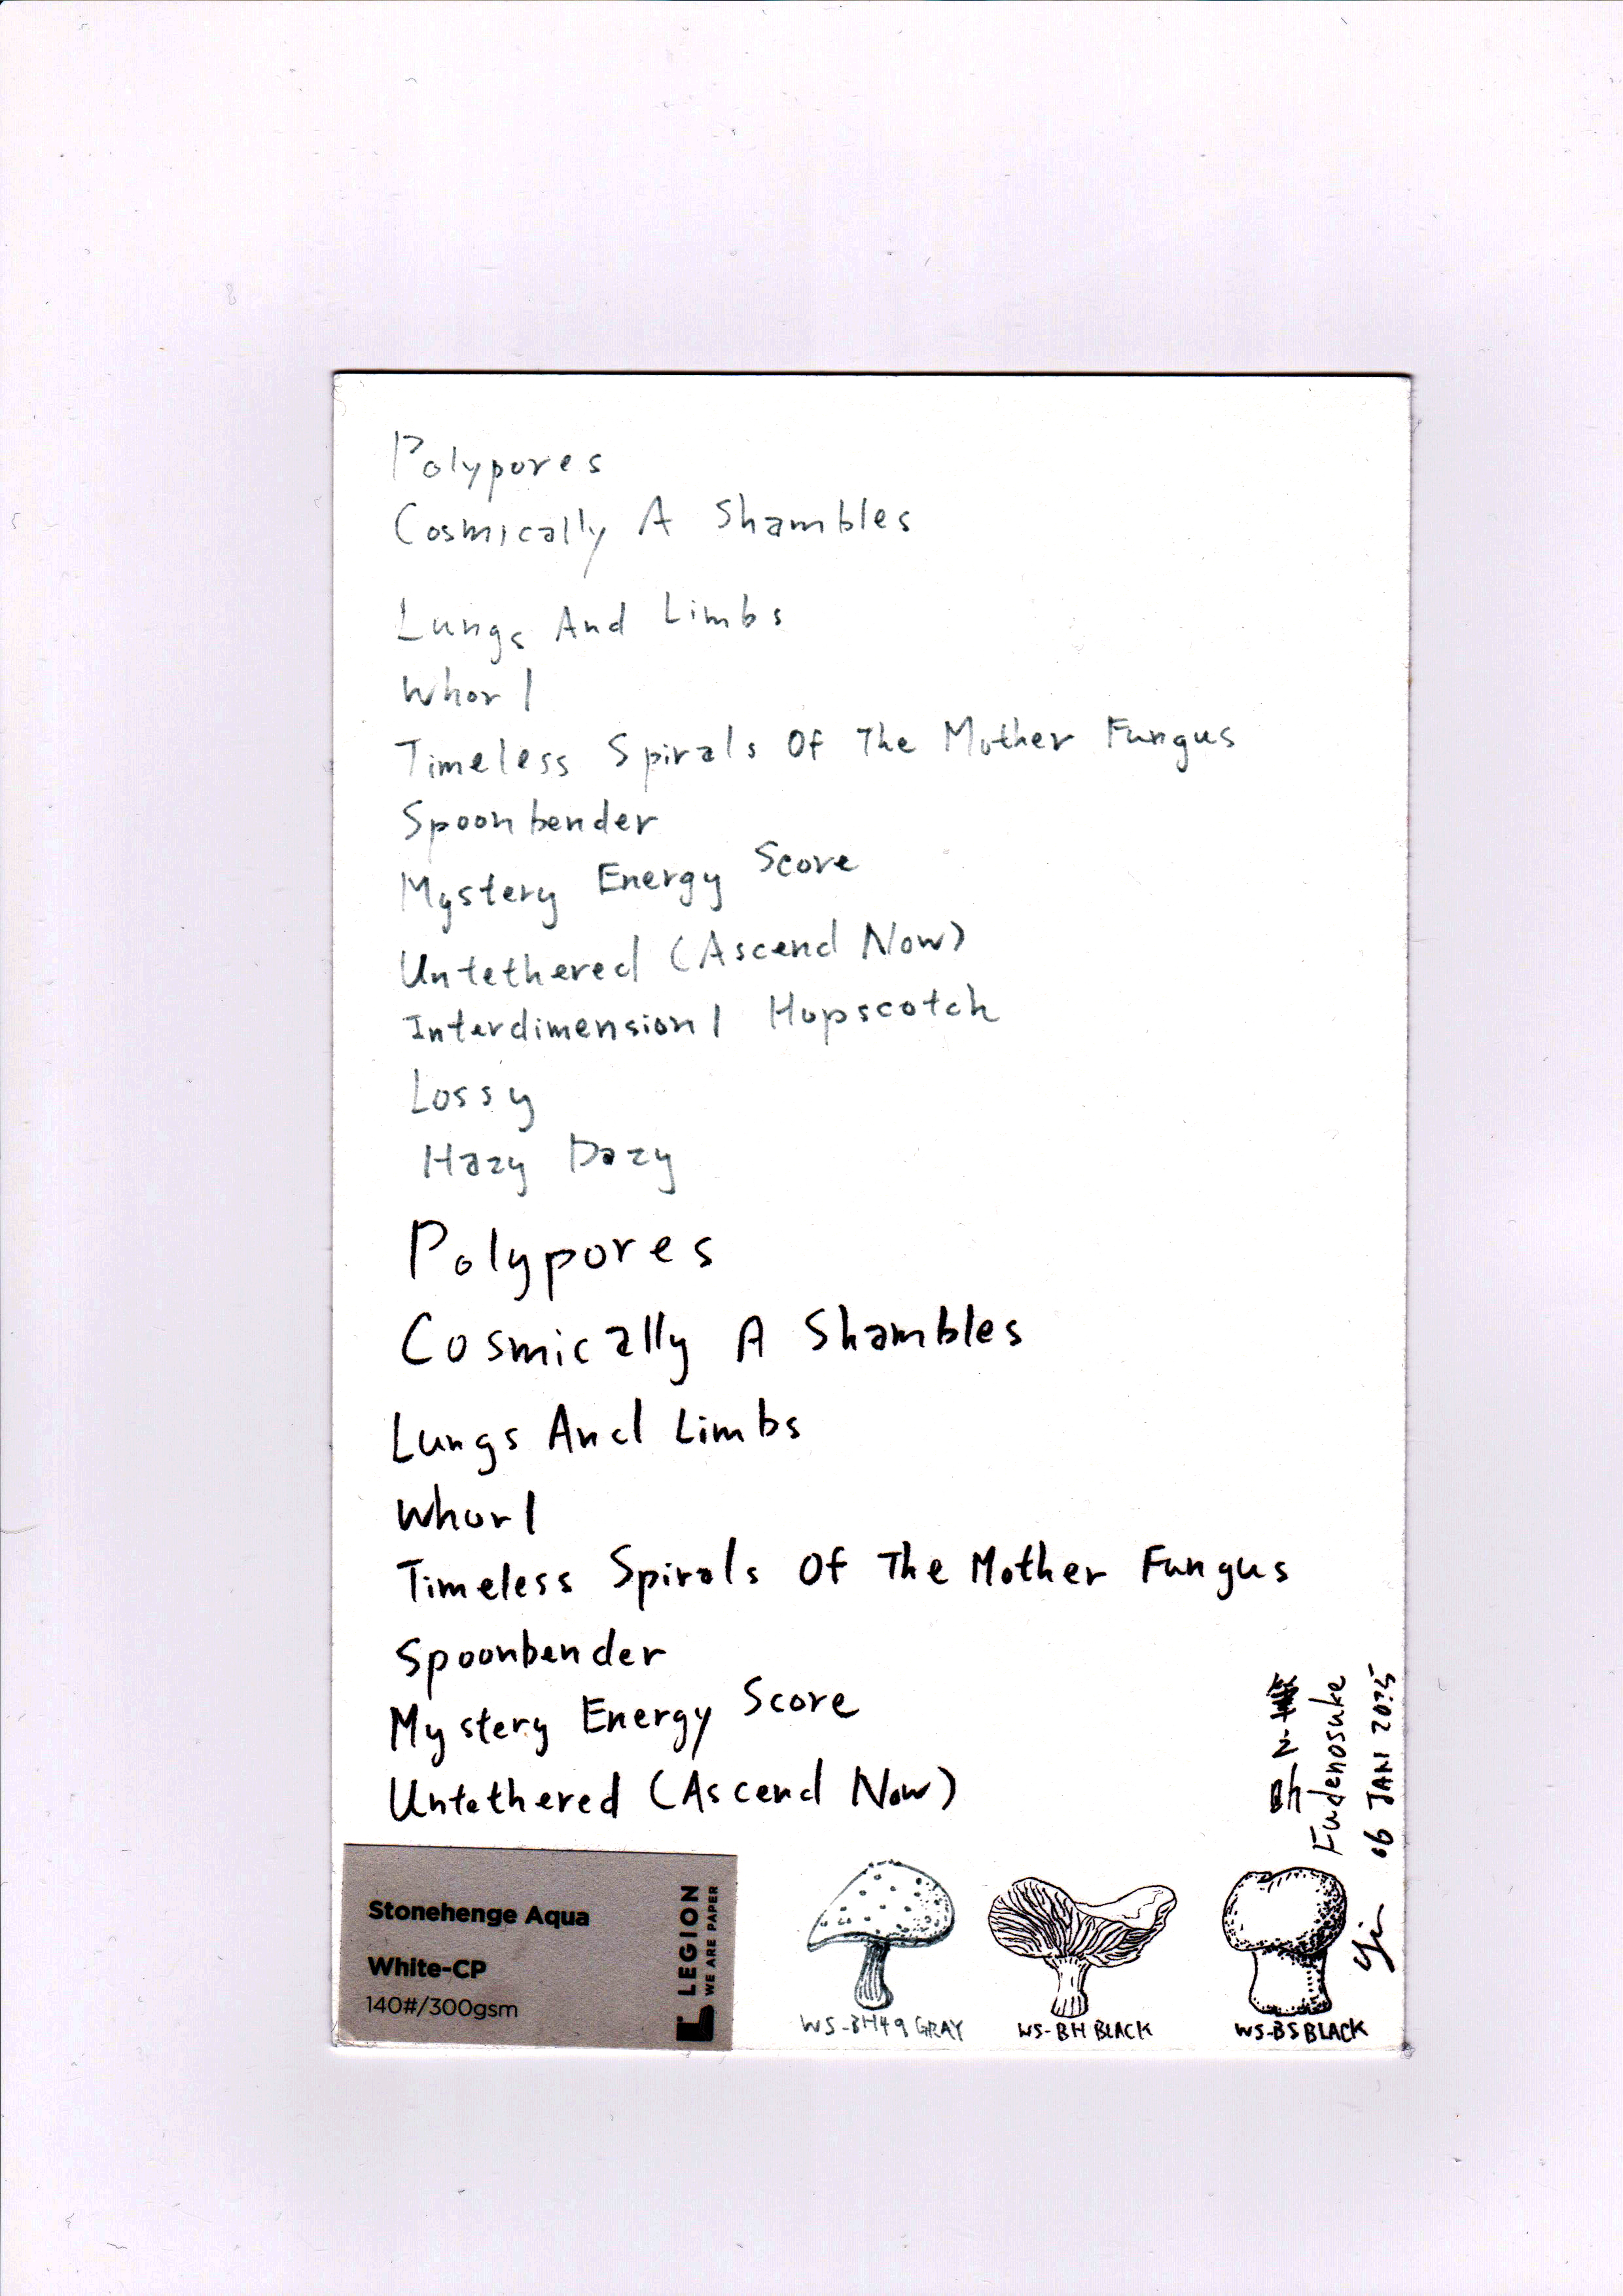 Polypores
Cosmically A Shambles
Lungs And Limbs
Whorl
Timeless Spirals Of The Mother Fungus
Spoonbender
Mystery Energy Score
Untethered (Ascend Now)
Interdimensionl Hopscotch
Lossy
Hazy Dazy
Polypores
Cosmically A Shambles
Lungs And Limbs
Whorl
Timeless Spirals Of The Mother Fungus
Spoonbender
Mystery Energy Score
Untethered (Ascend Now)
Fudenosuke
06 JAN 2025
Stonehenge Aqua
White-CP
140#/300gsm
LEGION
WE ARE PAPER
WS-BH49 GRAY
WS-BH BLACK
WS-BS BLACK